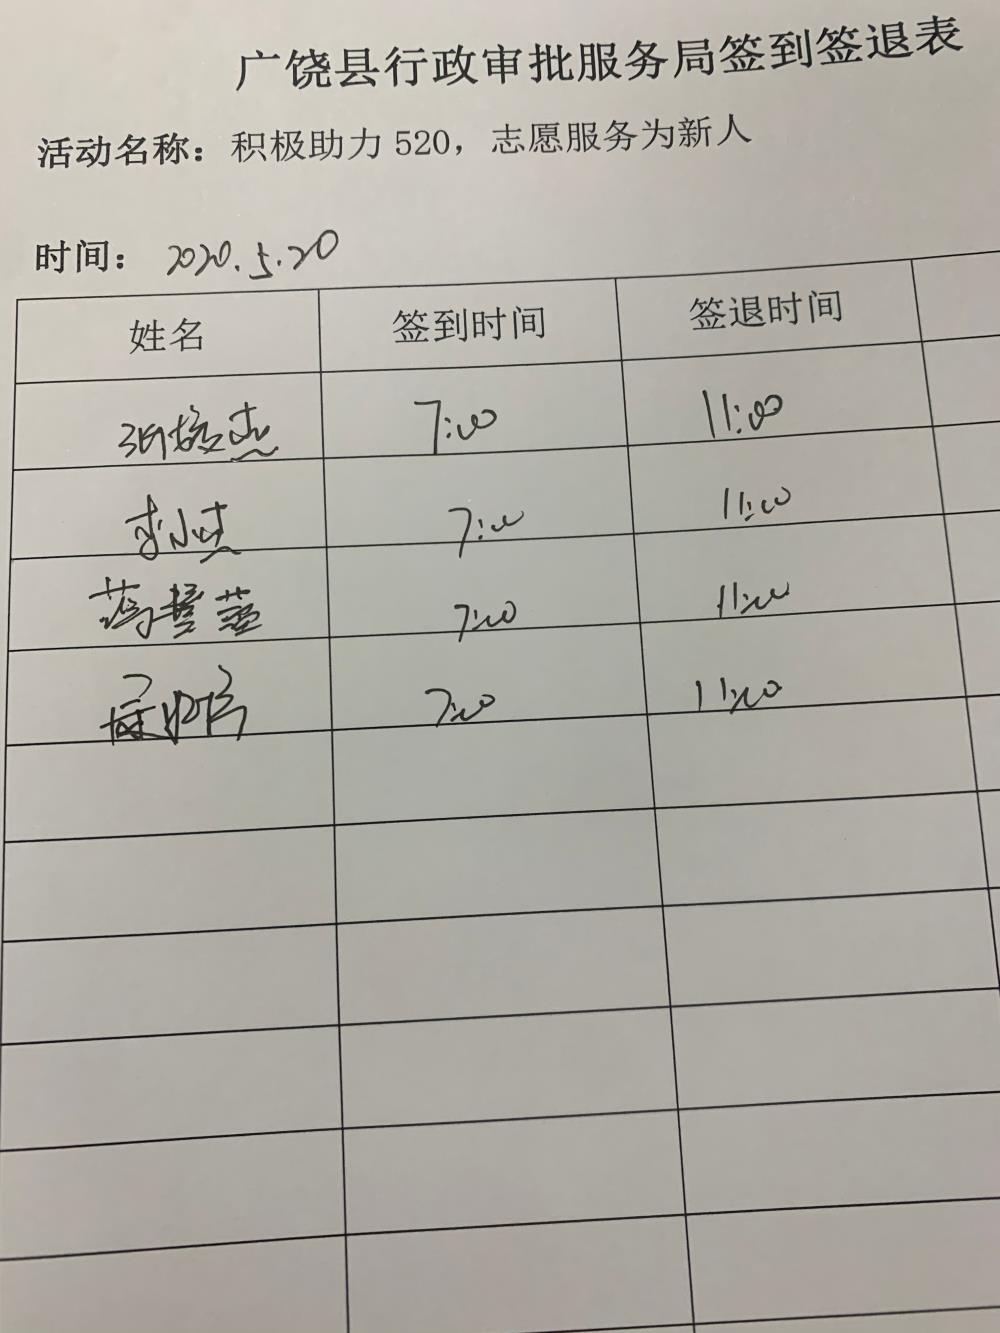 广饶县行政审批服务局签到签退表
活动名称：积极助力 520，志愿服务为新人
时间： 2020.5.20
姓名 签到时间 签退时间
7:00 11:00
李小杰 7:00 11:00
7:00 11:00
7:00 11:00